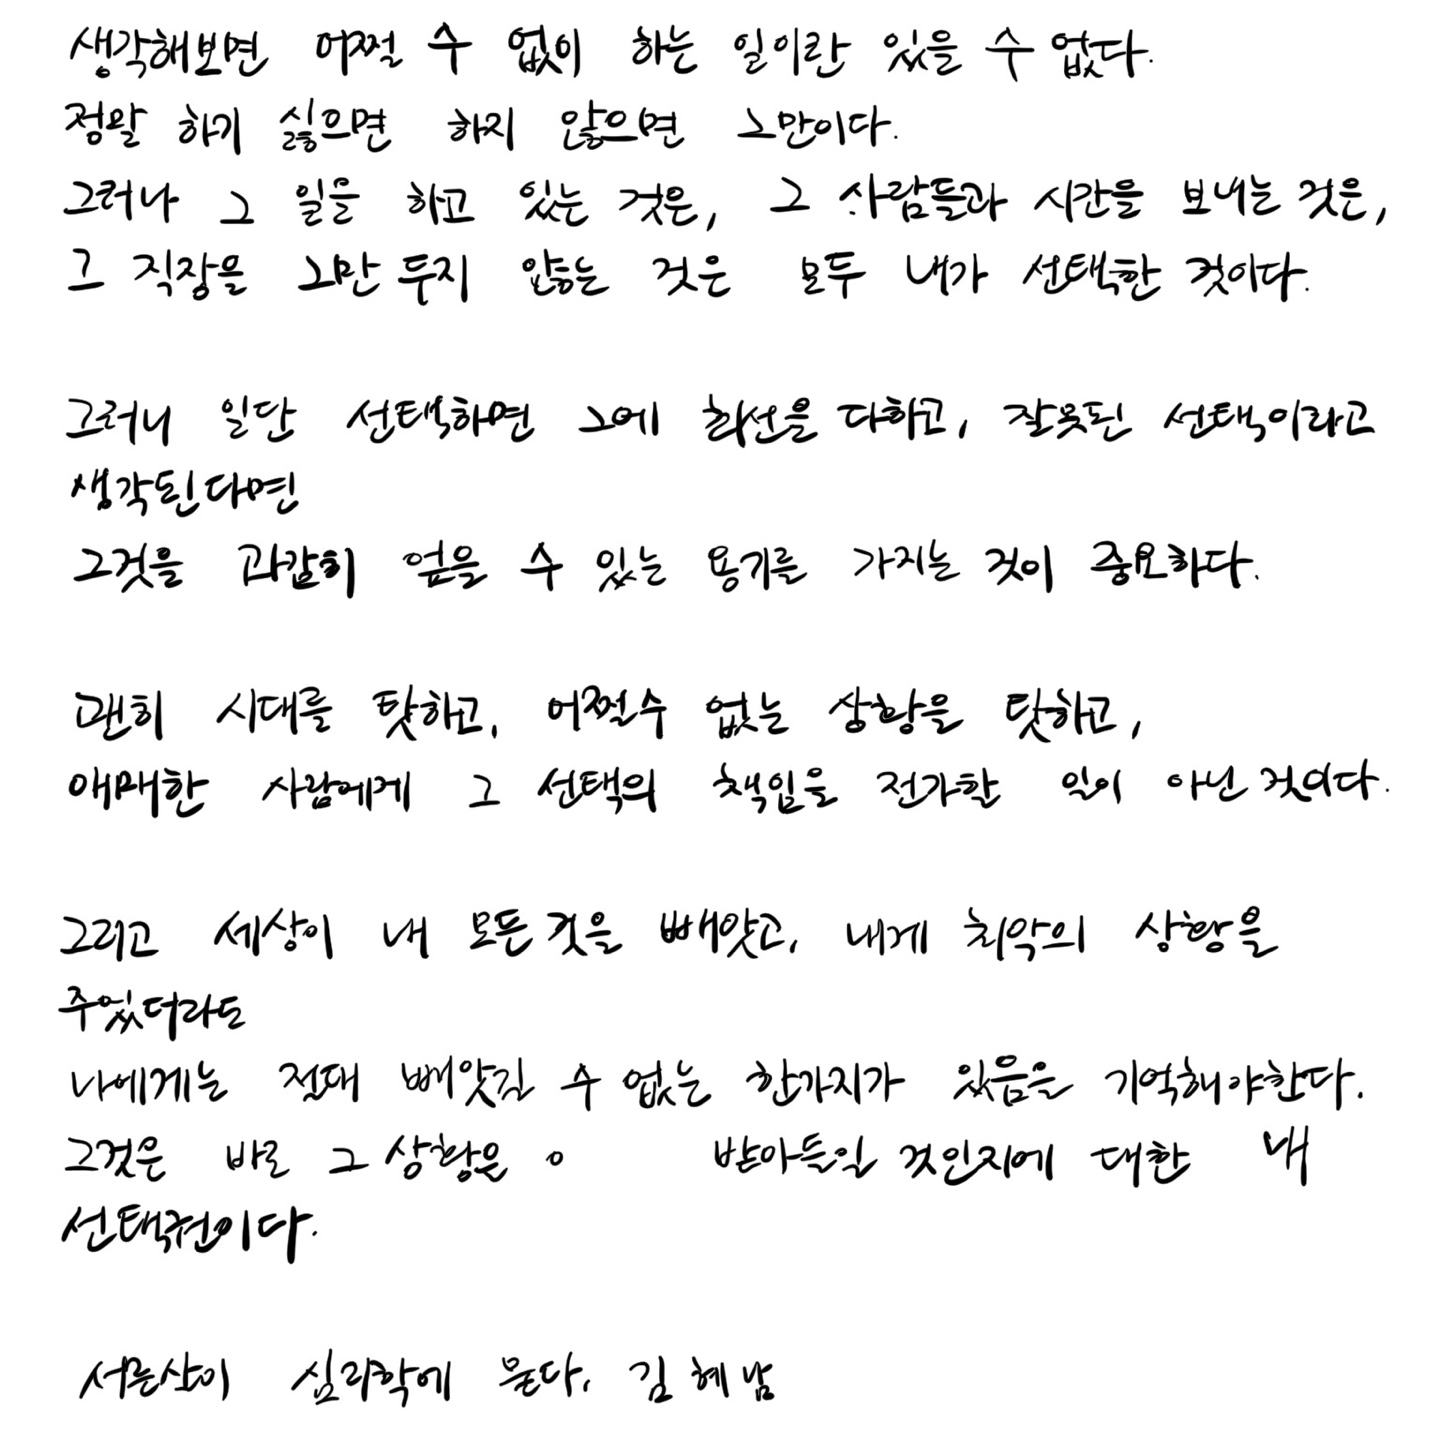 생각해보면 어쩔 수 없이 하는 일이란 있을 수 없다.
정말 하기 싫으면 하지 않으면 그만이다.
그러나 그 일을 하고 있는 것은, 그 사람들과 시간을 보내는 것은,
그 직장을 그만 두지 않는 것은 모두 내가 선택한 것이다.
그러니 일단 선택하면 그에 최선을 다하고, 잘못된 선택이라고
생각된다면
그것을 과감히 엎을 수 있는 용기를 가지는 것이 중요하다.
괜히 시대를 탓하고, 어쩔수 없는 상황을 탓하고,
애매한 사람에게 그 선택의 책임을 전가할 일이 아닌 것이다.
그리고 세상이 내 모든 것을 빼앗고, 내게 최악의 상황을
주었더라도
나에게는 절대 빼앗길 수 없는 한가지가 있음을 기억해야한다.
그것은 바로 그 상황을 ㅇ 받아들일 것인지에 대한 내
선택권이다.
서른살이 심리학에 묻다, 김혜남